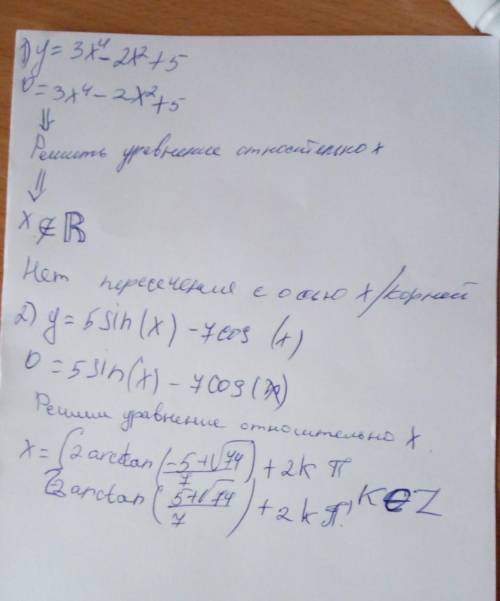 1) y = 3x⁴ - 2x² + 5
0 = 3x⁴ - 2x² + 5
⇓
Решить уравнение относительно x
⇓
x ∉ ℝ
Нет пересечения с осью x/корней
2) y = 5 sin(x) - 7 cos (x)
0 = 5 sin(x) - 7 cos(x)
Решим уравнение относительно x
x = { 2 arctan (-5+√74/7) + 2kπ
2 arctan (5+√74/7) + 2kπ, k∈Z